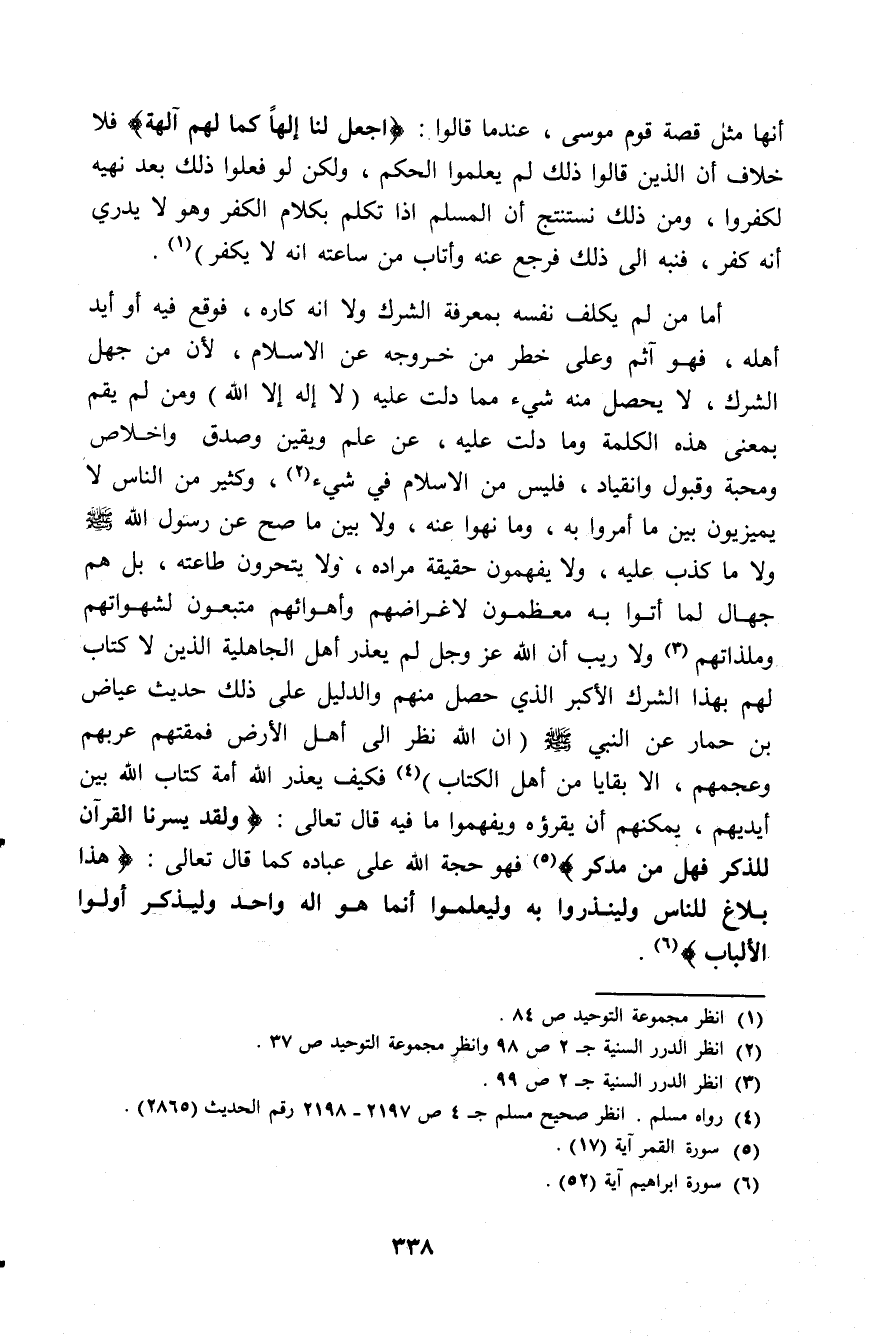 أنها مثل قصة قوم موسى ، عندما قالوا : ﴿اجعل لنا إلهاً كما لهم آلهة﴾ فلا
خلاف أن الذين قالوا ذلك لم يعلموا الحكم ، ولكن لو فعلوا ذلك بعد نهيه
لكفروا ، ومن ذلك نستنتج أن المسلم اذا تكلم بكلام الكفر وهو لا يدري
أنه كفر ، فنبه الى ذلك فرجع عنه وأتاب من ساعته انه لا يكفر )(١) .
أما من لم يكلف نفسه بمعرفة الشرك ولا انه كاره ، فوقع فيه أو أيد
أهله ، فهو آثم وعلى خطر من خروجه عن الاسلام ، لأن من جهل
الشرك ، لا يحصل منه شيء مما دلت عليه ( لا إله إلا الله ) ومن لم يقم
بمعنى هذه الكلمة وما دلت عليه ، عن علم ويقين وصدق واخلاص
ومحبة وقبول وانقياد ، فليس من الاسلام في شيء(٢) ، وكثير من الناس لا
يميزيون بين ما أمروا به ، وما نهوا عنه ، ولا بين ما صح عن رسول الله ﷺ
ولا ما كذب عليه ، ولا يفهمون حقيقة مراده ، ولا يتحرون طاعته ، بل هم
جهال لما أتوا به معظمون لاغراضهم وأهوائهم متبعون لشهواتهم
وملذاتهم (٣) ولا ريب أن الله عز وجل لم يعذر أهل الجاهلية الذين لا كتاب
لهم بهذا الشرك الأكبر الذي حصل منهم والدليل على ذلك حديث عياض
بن حمار عن النبي ﷺ ( ان الله نظر الى أهل الأرض فمقتهم عربهم
وعجمهم ، الا بقايا من أهل الكتاب )(٤) فكيف يعذر الله أمة كتاب الله بين
أيديهم ، يمكنهم أن يقرؤه ويفهموا ما فيه قال تعالى : ﴿ ولقد يسرنا القرآن
للذكر فهل من مدكر ﴾(٥) فهو حجة الله على عباده كما قال تعالى : ﴿ هذا
بلاغ للناس ولينذروا به وليعلموا أنما هو اله واحد وليذكر أولوا
الألباب ﴾(٦) .
(١) انظر مجموعة التوحيد ص ٨٤ .
(٢) انظر الدرر السنية جـ ٢ ص ٩٨ وانظر مجموعة التوحيد ص ٣٧ .
(٣) انظر الدرر السنية جـ ٢ ص ٩٩ .
(٤) رواه مسلم . انظر صحيح مسلم جـ ٤ ص ٢١٩٧ ـ ٢١٩٨ رقم الحديث (٢٨٦٥) .
(٥) سورة القمر آية (١٧) .
(٦) سورة ابراهيم آية (٥٢) .
٣٣٨